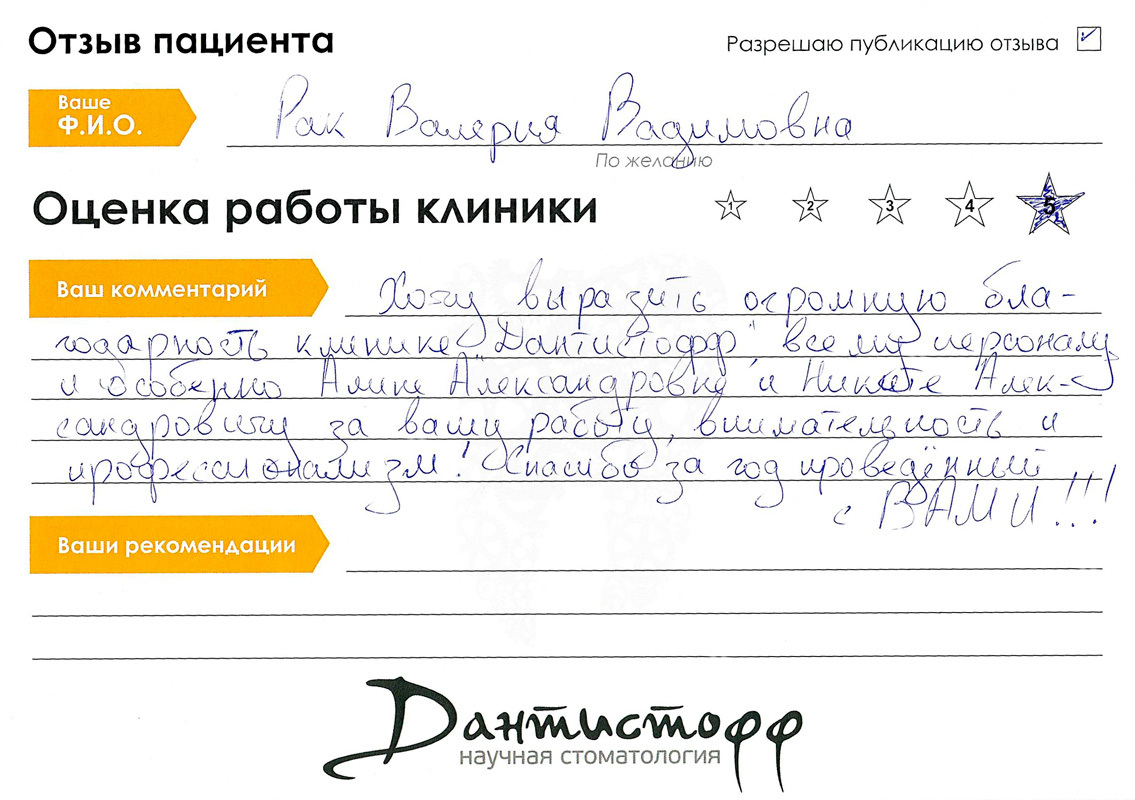 Отзыв пациента
Разрешаю публикацию отзыва
Ваше
Ф.И.О.
Рак Валерия Вадимовна
По желанию
Оценка работы клиники
1 2 3 4 5
Ваш комментарий
Хочу выразить огромную бла-
годарность клинике "Дантистофф", всему персоналу
и особенно Алине Александровне и Никите Алек-
сандровичу за вашу работу, внимательность и
профессионализм! Спасибо за год проведённый
с ВАМИ!!!
Ваши рекомендации
Дантистофф
научная стоматология